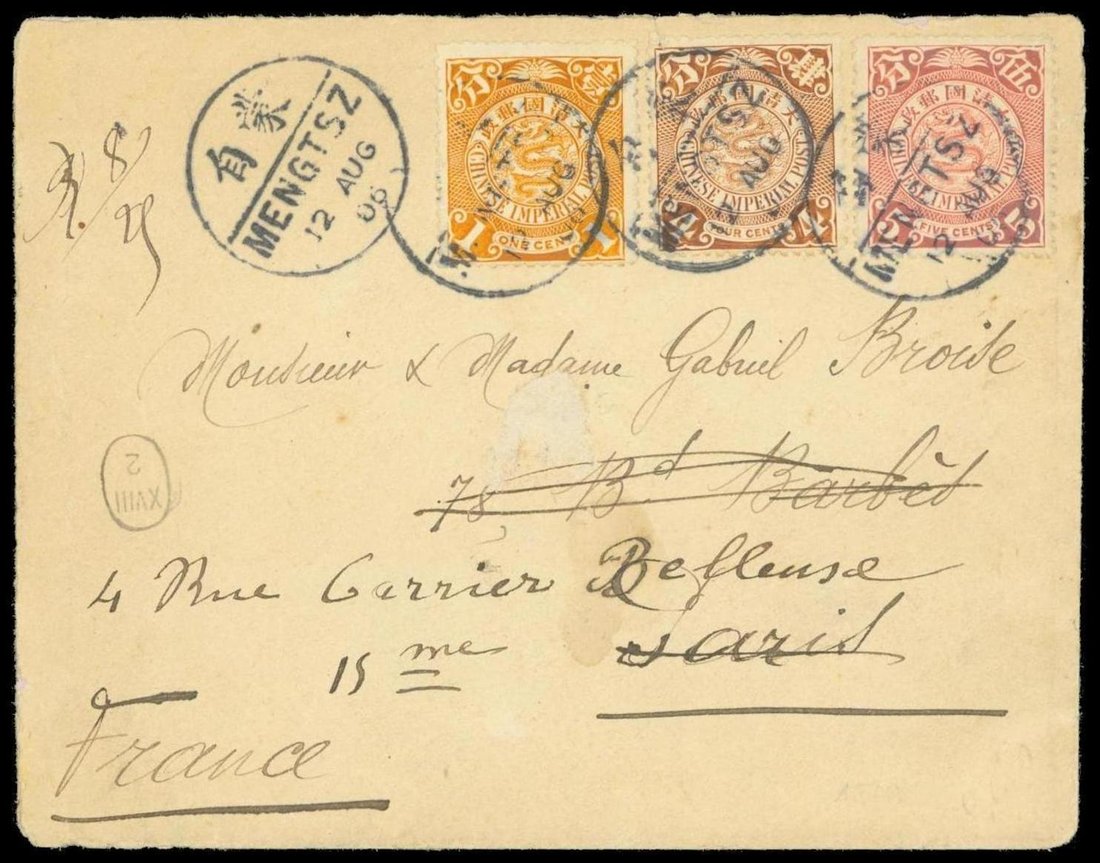 蒙自
MENGTSZ
12 AUG
06
分 壹
大清國郵政
CHINESE IMPERIAL POST
1 ONE CENT 1
分 肆
大清國郵政
CHINESE IMPERIAL POST
4 FOUR CENTS 4
分 伍
大清國郵政
CHINESE IMPERIAL POST
5 FIVE CENTS 5
MENGTSZ
12 AUG
MENGTSZ
AUG
MENGTSZ
12 AUG
Monsieur & Madame Gabriel Broise
78 Bd Barbès
4 Rue Carrier Belleuse
15 me Paris
France
2
XVIII